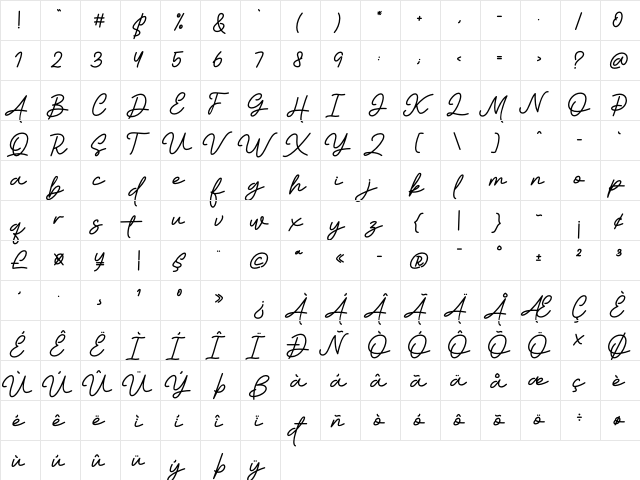 ! " # $ % & ' ( ) * + , - . / 0
1 2 3 4 5 6 7 8 9 : ; < = > ? @
A B C D E F G H I J K L M N O P
Q R S T U V W X Y Z [ \ ] ^ - `
a b c d e f g h i j k l m n o p
q r s t u v w x y z { | } ~ ¡ ¢
£ ¤ ¥ ¦ § ¨ © ª « - ® ¯ ° ± ² ³
´ · ¸ ¹ º » ¿ À Á Â Ã Ä Å Æ Ç È
É Ê Ë Ì Í Î Ï Ð Ñ Ò Ó Ô Õ Ö × Ø
Ù Ú Û Ü Ý Þ ß à á â ã ä å æ ç è
é ê ë ì í î ï ð ñ ò ó ô õ ö ÷ ø
ù ú û ü ý þ ÿ